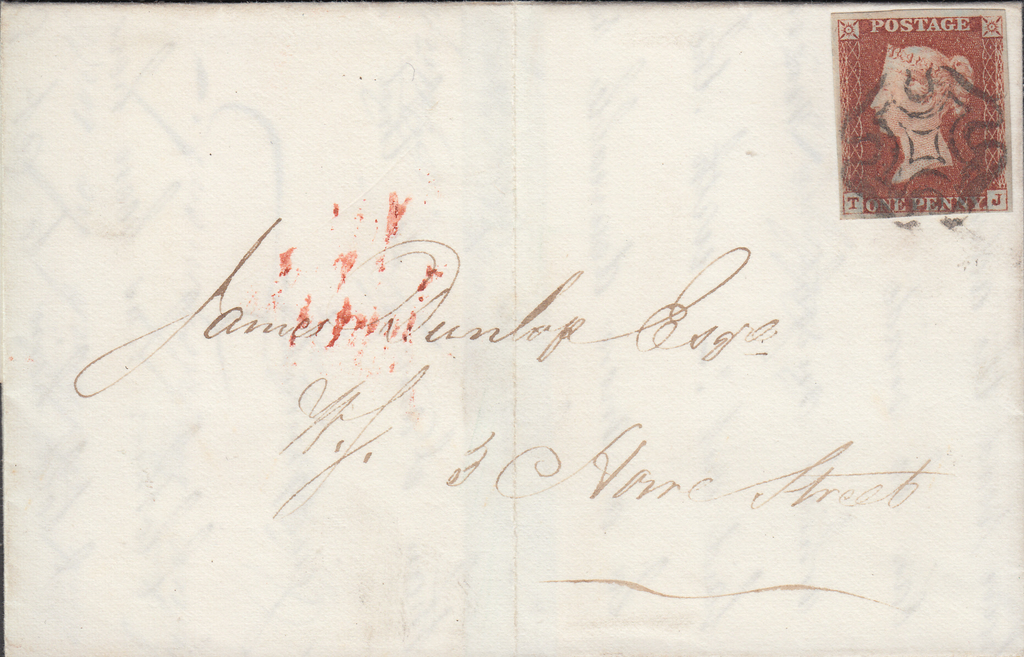 POSTAGE
T ONE PENNY J
James Dunlop Esqre
W.S. 3 Howe Street